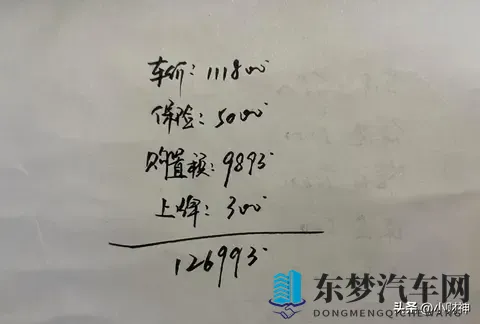 车价：111800
保险：5000
购置税：9893
上牌：300
126993
东梦汽车网
DONGMENGQICHEWANG
头条 @小财神